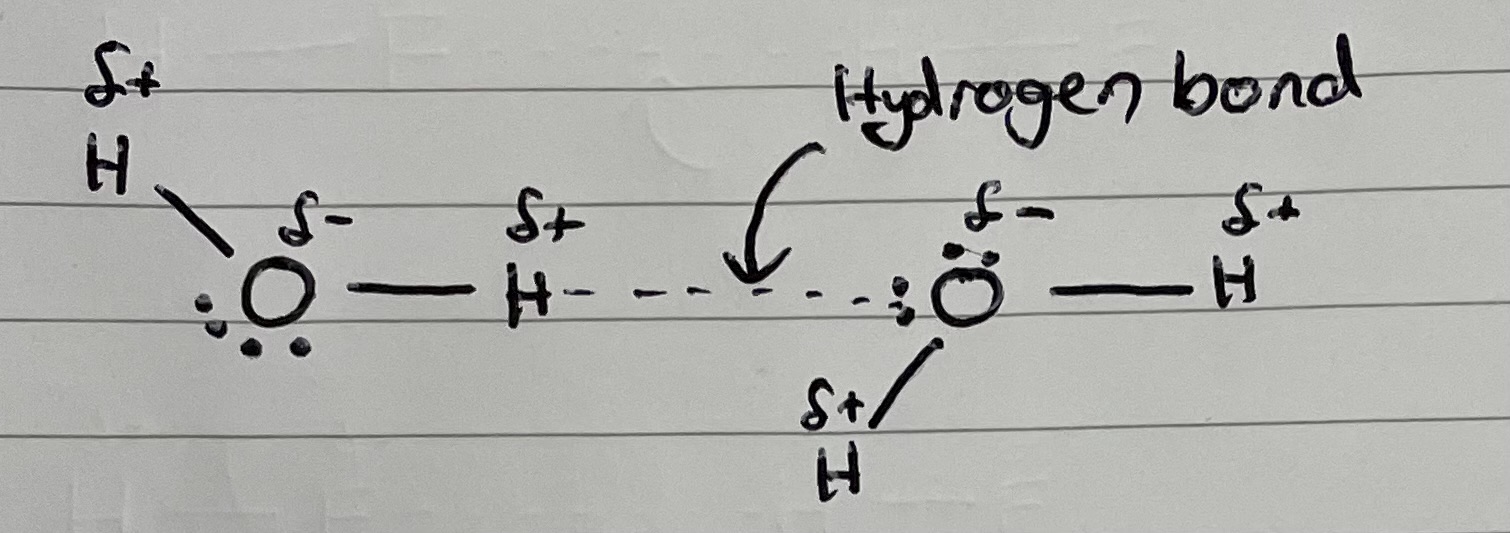 δ+
Hydrogen bond
H
δ- δ+ δ- δ+
O H O H
δ+
H